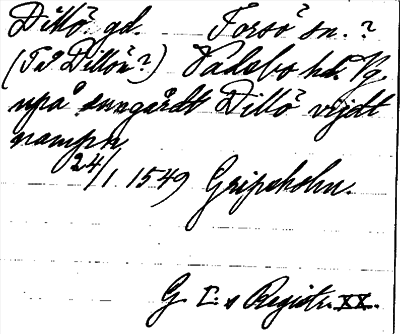 Dillö. gd. Torsö sn.?
(Tal Dillön?) Vadsbo hd. Vg.
upå samgårdt Dillö vijdt
nampn
24/1. 1549 Gripsholm.
G. I:s Registr. XX.